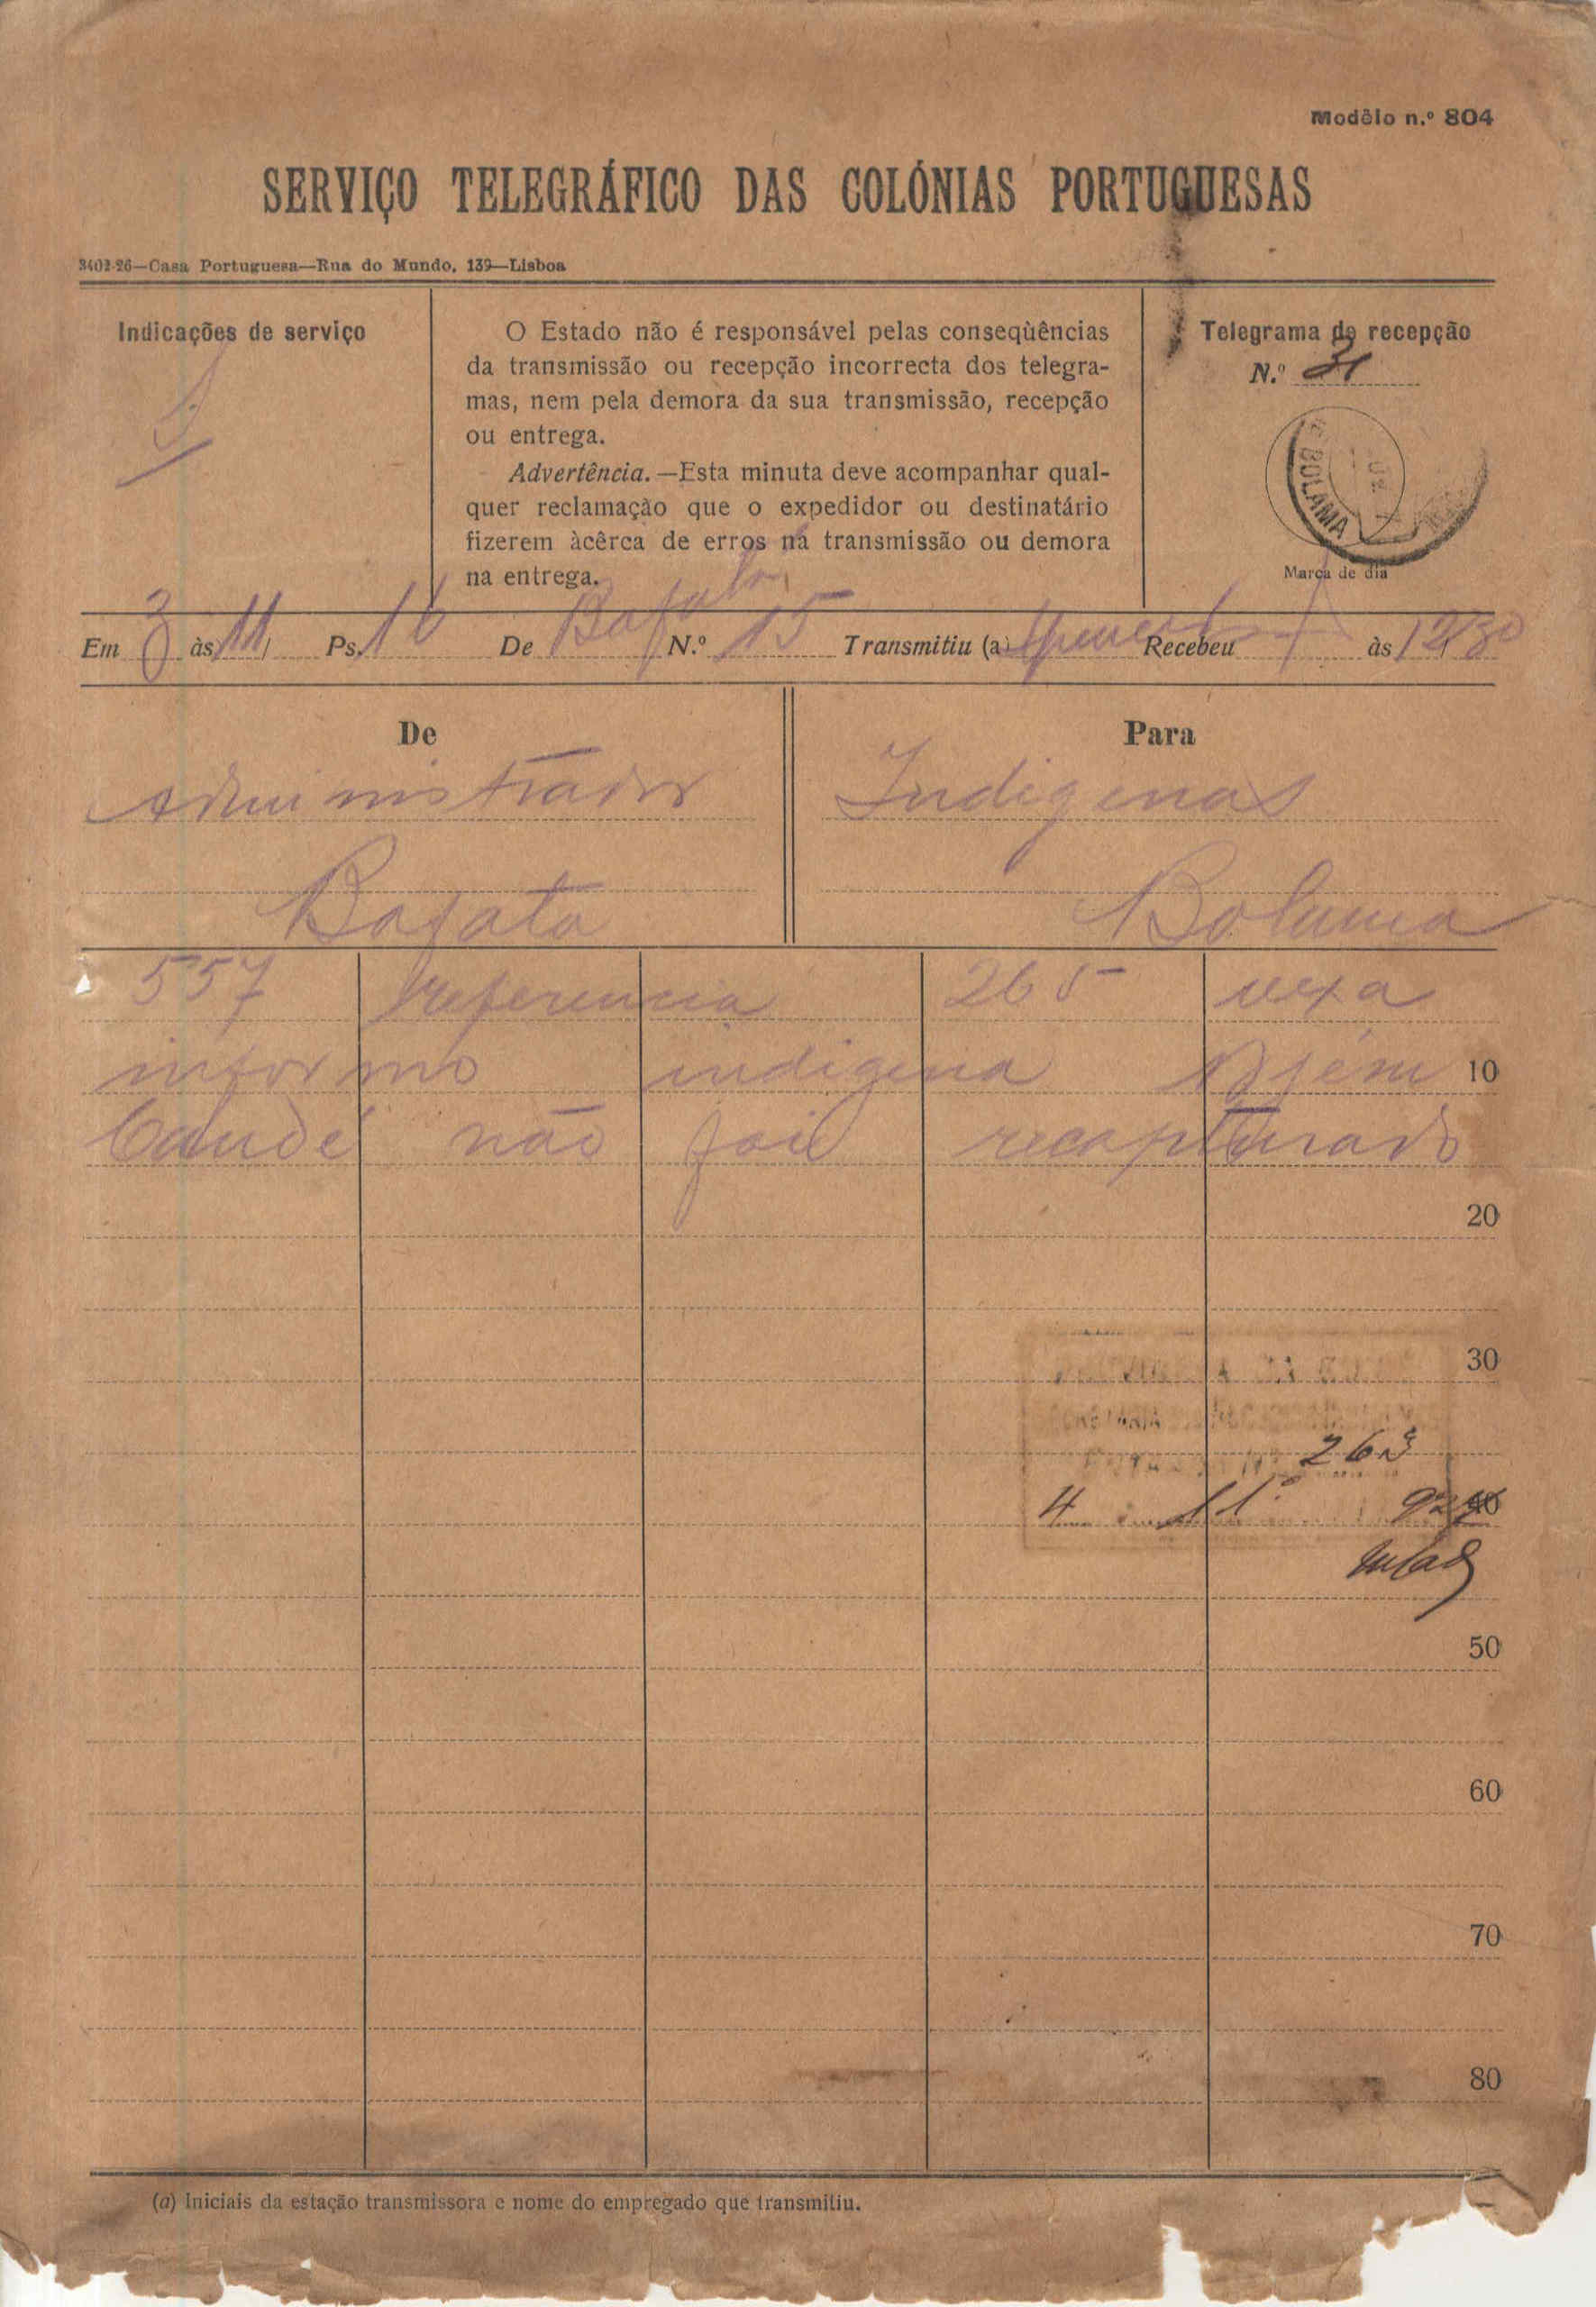 Modêlo n.º 804
SERVIÇO TELEGRÁFICO DAS COLÓNIAS PORTUGUESAS
3402-26—Casa Portuguesa—Rua do Mundo, 139—Lisboa
Indicações de serviço
S
O Estado não é responsável pelas conseqùências
da transmissão ou recepção incorrecta dos telegra-
mas, nem pela demora da sua transmissão, recepção
ou entrega.
Advertência.—Esta minuta deve acompanhar qual-
quer reclamação que o expedidor ou destinatário
fizerem àcêrca de erros na transmissão ou demora
na entrega.
Telegrama de recepção
N.º
BOLAMA
Marca de dia
Em 3 às 11 Ps. 16 De Bafatá N.º 15 Transmitiu (a) Recebeu às 12/30
De
Administrador
Bafata
Para
Indigenas
Bolama
557 referencia 265 vexa
informo indigena Djém 10
Candé não foi recapturado
20
30
263
4 11 927
40
50
60
70
80
(a) Iniciais da estação transmissora e nome do empregado que transmitiu.